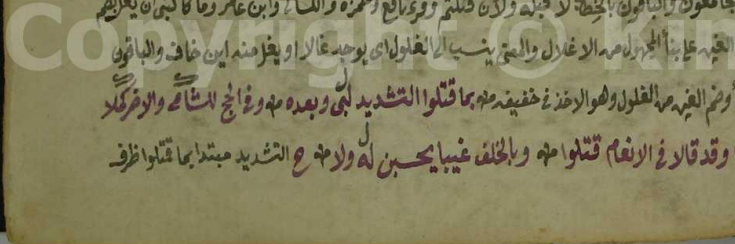 جامعون والباقون بالخطاب لا قبله ولان قتلتم وقرء نافع وحمزه والكسائي وابن عامر وما كان لنبي ان يغل بضم
الغين على بناء المجهول من الاغلال والمعنى ينسب الى الغلول اى يوجد غالا او يغل منه اين خاف والباقون
وضم الغين من الغلول وهو الاخذ فى خفيفه بما قتلوا التشديد لبى وبعده وفى الحج للشامى والاخر كملا
وقد قالا فى الانعام قتلوا وبالخلف غيبا يحسبن له ولا ح التشديد مبتدا بما قتلوا ظرف
Copyright ©